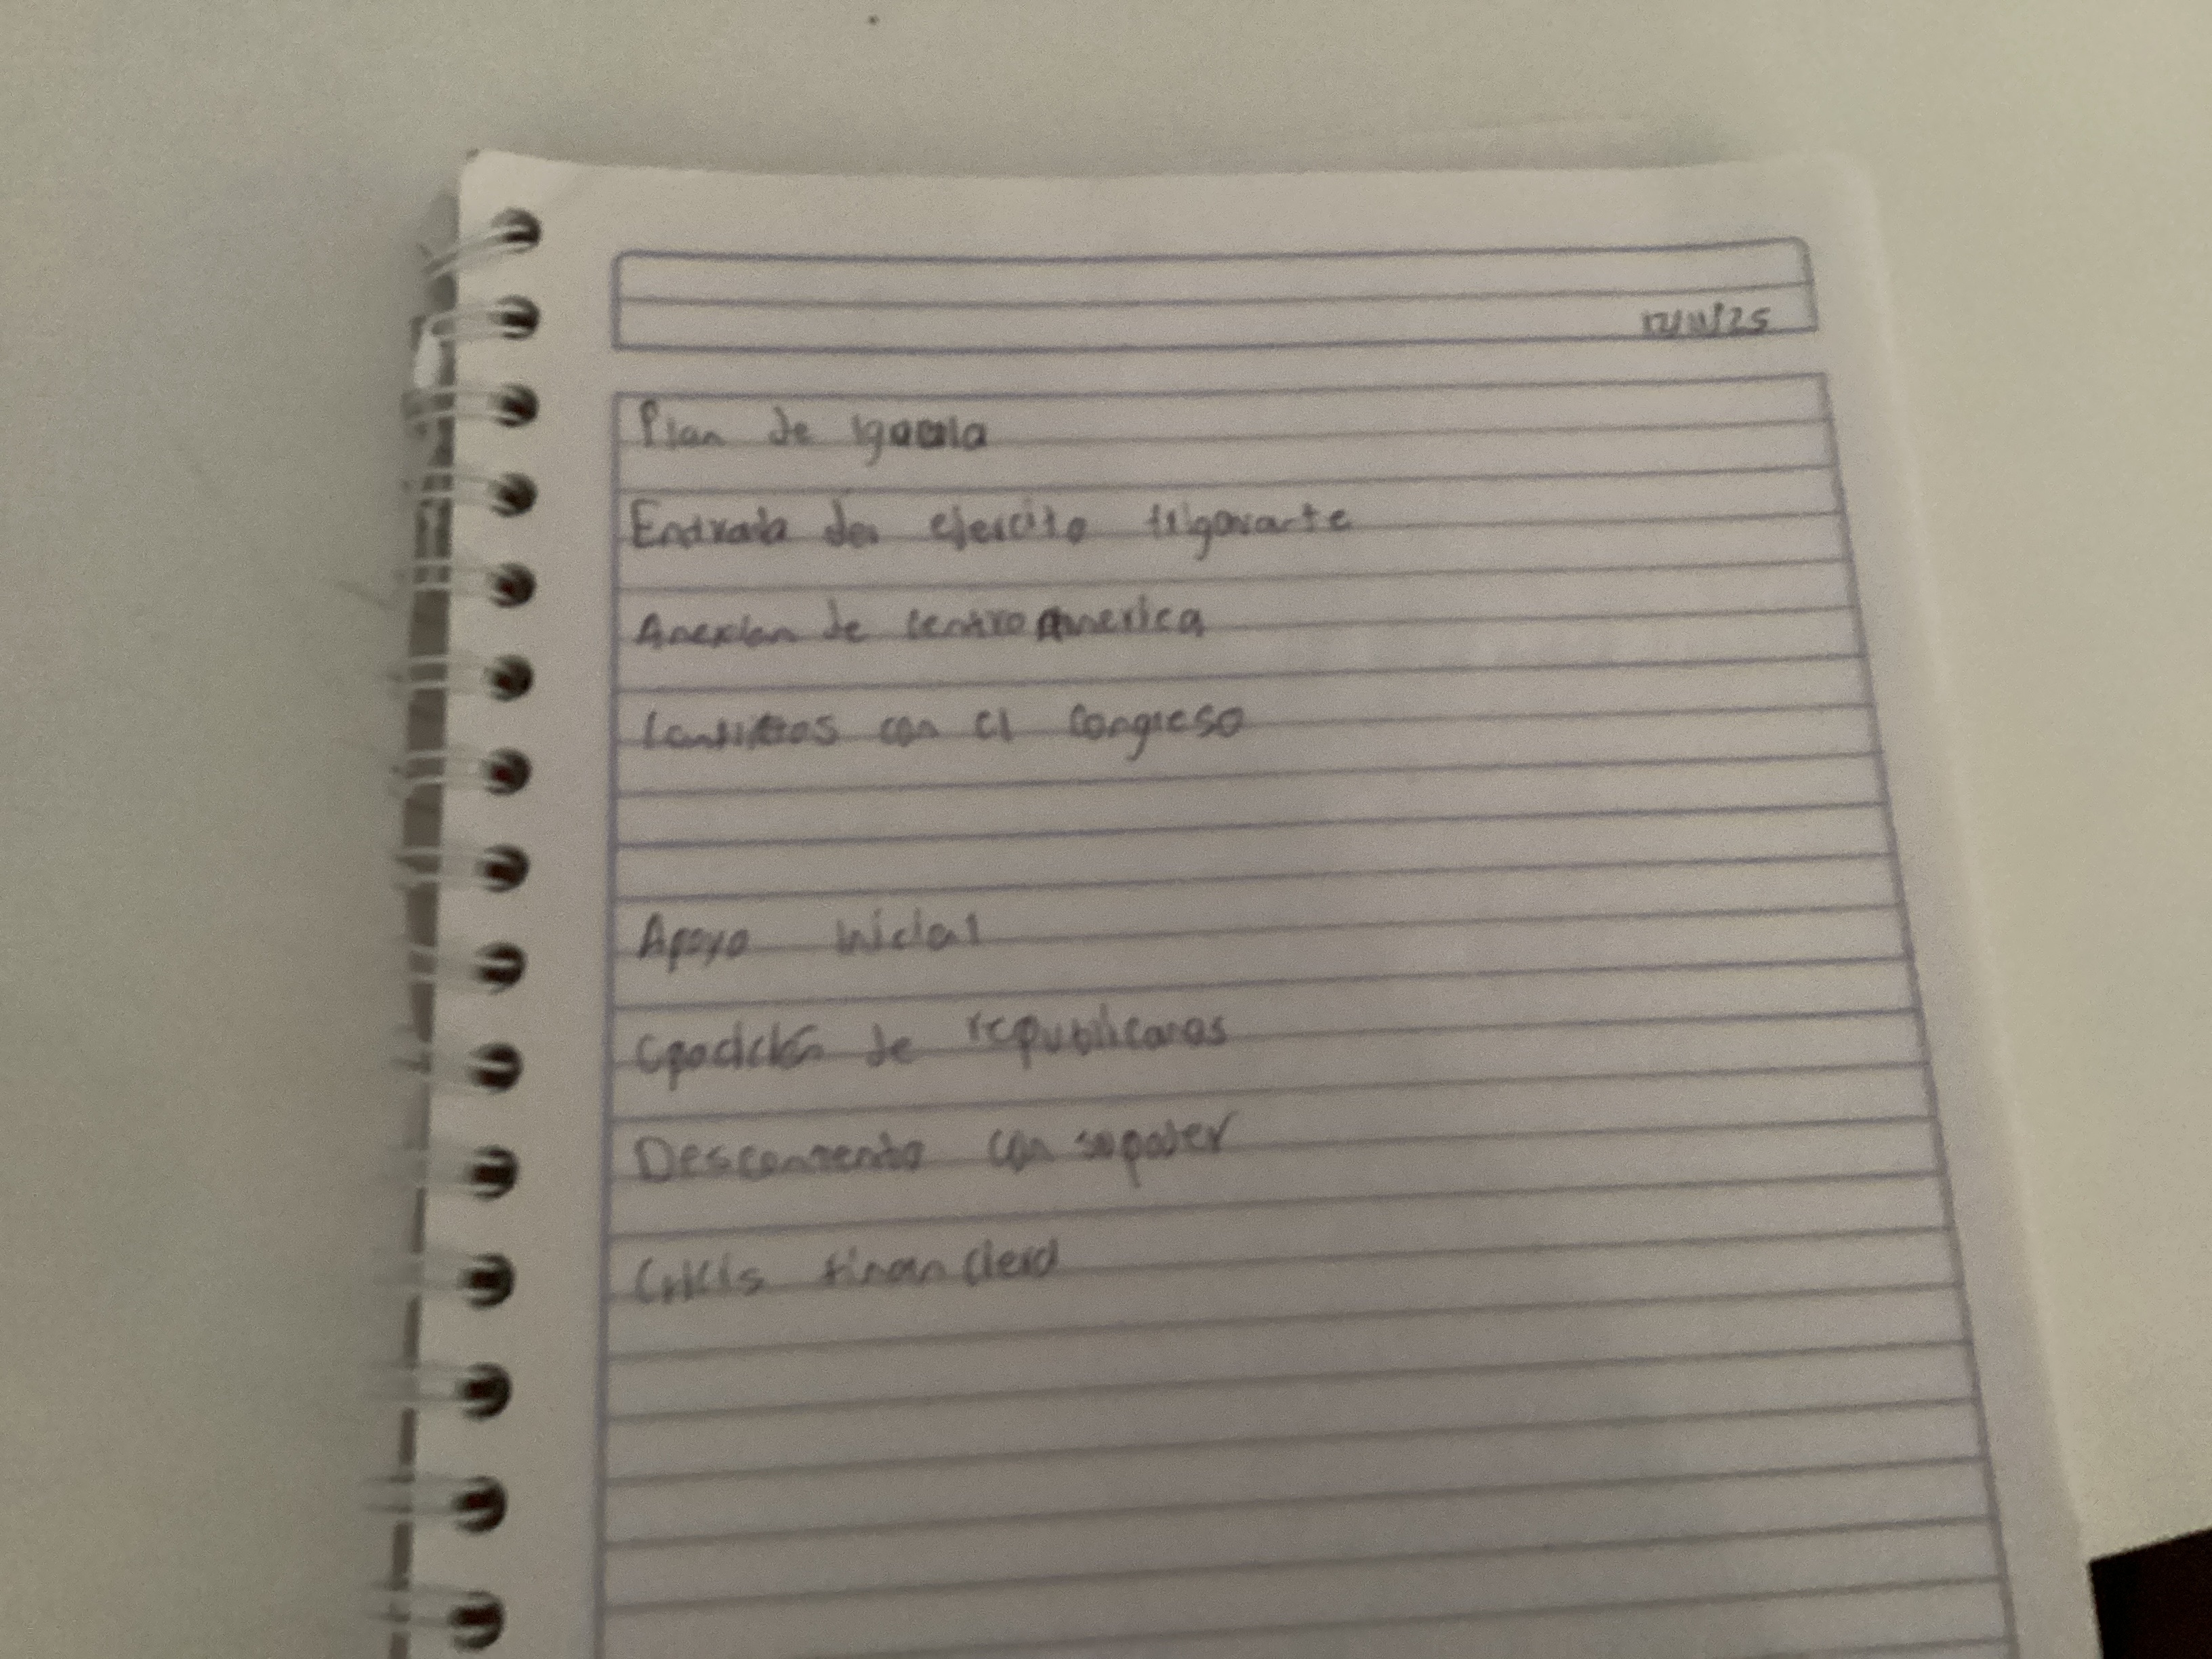 12/11/25
Plan de iguala
Entrada del ejercito trigarante
Anexion de centro america
Conflictos con el congreso
Apoyo inicial
Opocición de republicanos
Descontento con su poder
Cricis financiera